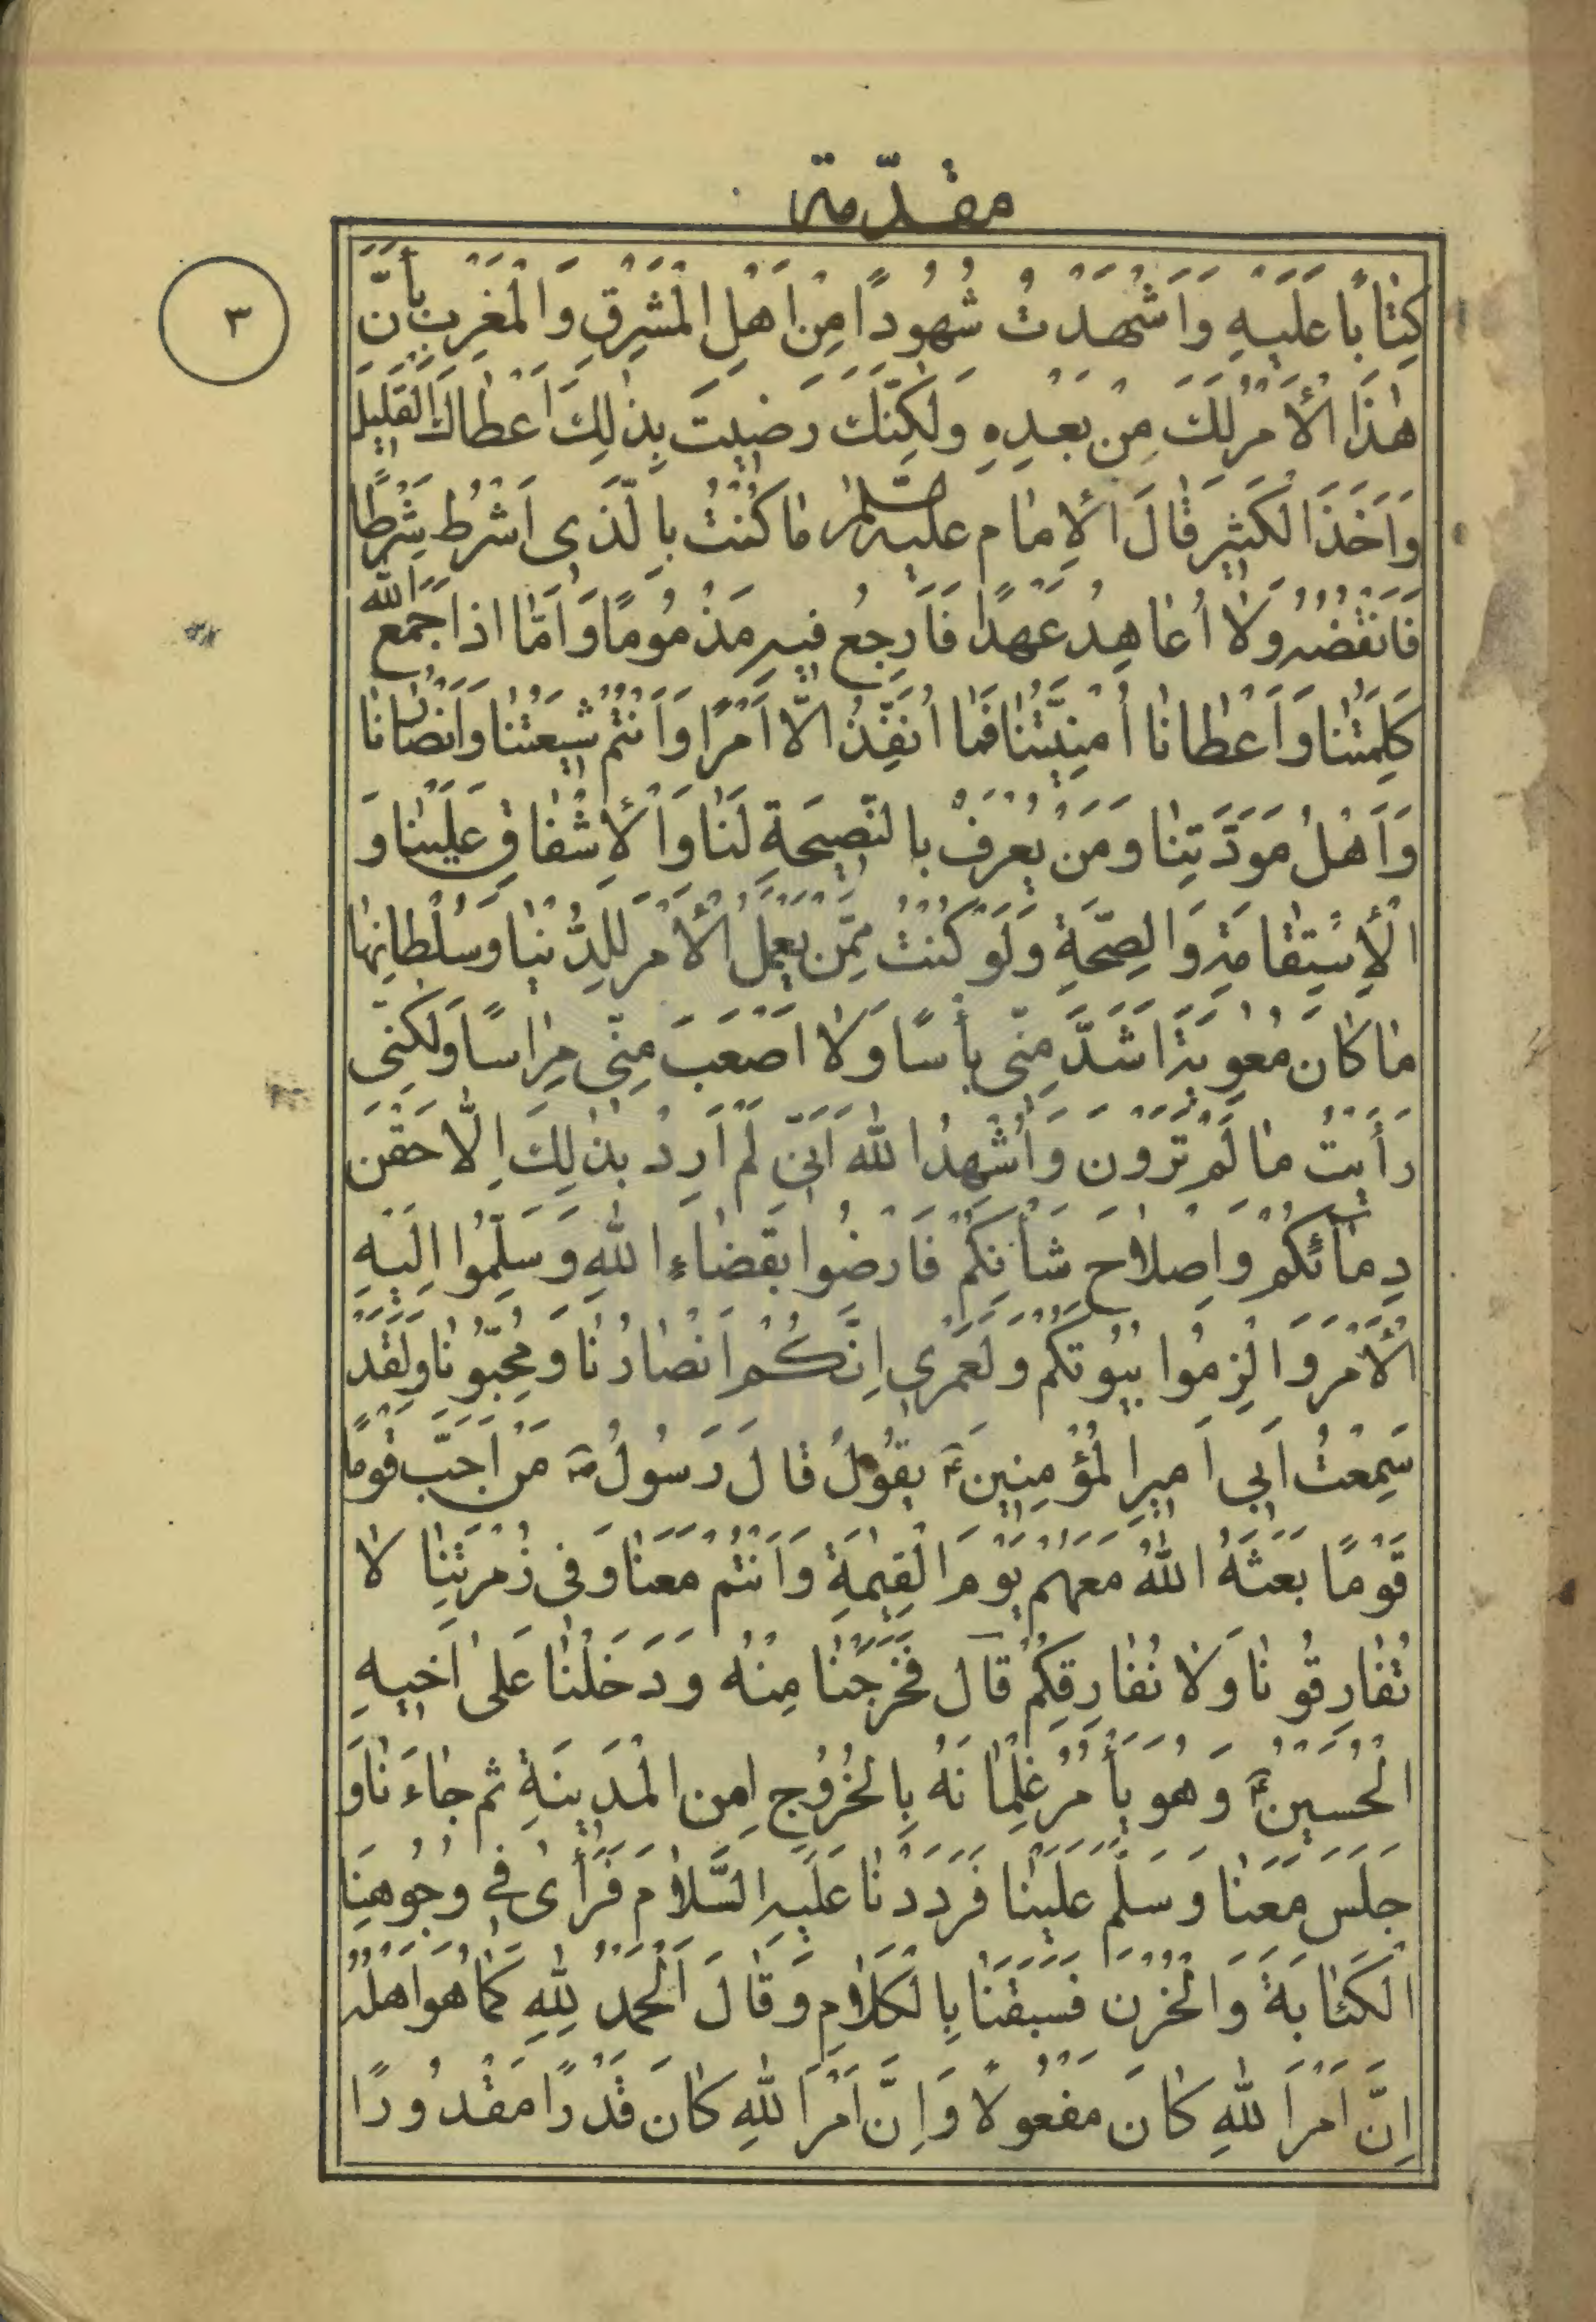 مقدّمة
٣
كِتٰابًا عَلَيْهِ وَاَشْهَدْتُ شُهُودًا مِنْ اَهْلِ الْمَشْرِقِ وَالْمَغْرِبِ بِأَنَّ
هٰذَا الْأَمْرَ لَكَ مِنْ بَعْدِهِ وَلٰكِنَّكَ رَضِيتَ بِذٰلِكَ اَعْطَاكَ الْقَلِيلَ
وَاَخَذَ الْكَثِيرَ قٰالَ الْأِمٰام عليه السّلام مٰا كُنْتُ بِالَّذِى اَشْرُط شَرْطًا
فَاَنْقُضُهُ وَلٰا اُعٰاهِدُ عَهْدًا فَاَرجِعُ فيهِ مَذْمُومًا وَاَمّٰا اذا جَمَعَ الله
كَلِمَتَنٰا وَاَعْطٰانٰا اُمْنِيَّتَنٰا فَمٰا اُنَفِّذُ الّٰا اَمْرًا وَاَنْتُمْ شيعَتُنٰا وَاَنْصٰارُنٰا
وَاَهْلُ مَوَدَّتِنٰا وَمَنْ يُعْرَفُ بالنَّصِيحَةِ لَنٰا وَالْأِشْفٰاقِ عَلَيْنٰا وَ
الْأِسْتِقٰامَةِ وَالصِّحَّةِ وَلَوْ كُنْتُ مِمَّنْ يَعْمَلُ الْأَمْرَ لِلدُّنْيٰا وَسُلْطٰانِهٰا
مٰا كٰانَ مُعٰوِيَةُ اَشَدَّ مِنّى بأْسًا وَلٰا اَصْعَبَ مِنّي مِرٰاسًا وَلٰكِنّى
رَأَيْتُ مٰا لَمْ تَرَوْن وَاُشْهِدُ اللهَ اَنّى لَمْ اُرِدْ بِذٰلِكَ اِلّٰا حَقْنَ
دِمٰائِكُمْ وَاِصْلاٰحَ شَأْنِكُمْ فَارضُوا بِقَضٰاءِ اللهِ وَسَلِّمُوا اِلَيْهِ
الْأَمْرَ وَالْزِمُوا بُيُوتَكُمْ وَلَعَمْرِي اِنَّكُمْ اَنْصٰارُنٰا وَمُحِبُّونٰا وَلَقَدْ
سَمِعْتُ اَبى اَميرَ الْمُؤْمِنينَ ع يَقُولُ قٰالَ رَسُولُ ص مَنْ اَحَبَّ قَوْمًا
قَوْمًا بَعَثَهُ اللهُ مَعَهُمْ يَوْمَ الْقِيٰمَةِ وَاَنْتُمْ مَعَنٰا وَفى زُمْرَتِنٰا لاٰ
تُفٰارِقُونٰا وَلٰا نُفٰارِقُكُمْ قٰال فَخَرَجْنٰا مِنْهُ وَدَخَلْنٰا عَلىٰ اَخيهِ
الْحُسَيْنِ ع وَهُوَ يَأْمُرُ غِلْمٰانَهُ بِالْخُرُوُجِ مِن الْمَدينَةِ ثم جٰاءَنٰا وَ
جَلَسَ مَعَنٰا وَسَلَّمَ عَلَيْنٰا فَرَدَدْنٰا عَلَيْهِ السَّلاٰم فَرَأىٰ في وُجُوهِنَا
الْكَئٰابَةَ وَالْحُزْنَ فَسَبَقَنٰا بِالْكَلاٰمِ وَقٰالَ اَلْحَمْدُ لِلّٰهِ كَمٰا هُوَ اَهْلُهُ
اِنَّ اَمْرَ اللهِ كٰانَ مَفْعُولًا وَاِنَّ اَمْرَ اللهِ كٰانَ قَدَرًا مَقْدُورًا